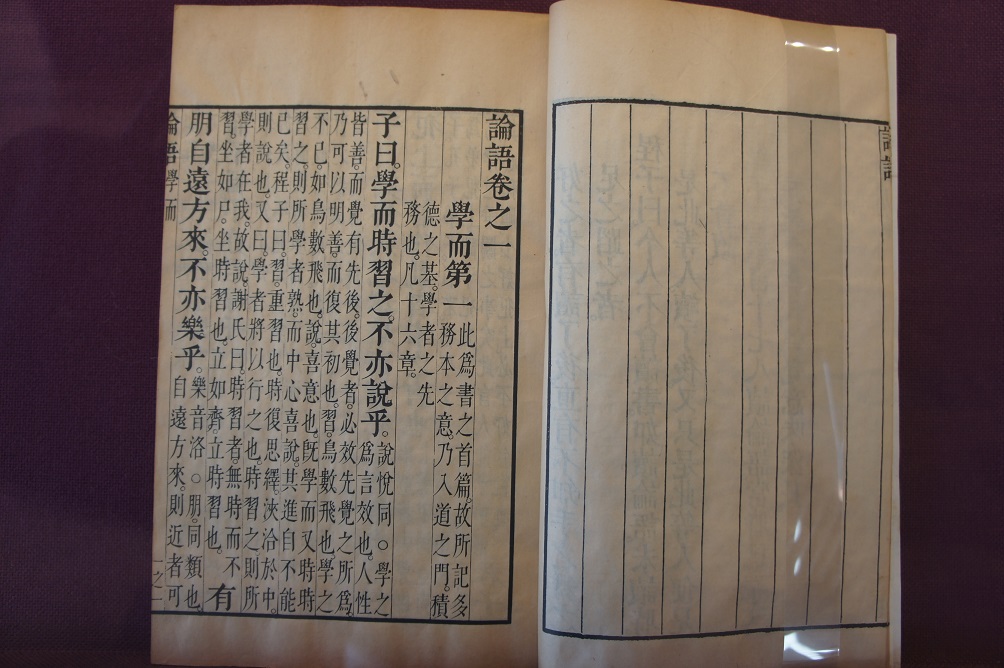 論語
論語卷之一
學而第一 此爲書之首篇。故所記多
務本之意。乃入道之門。積
德之基。學者之先
務也。凡十六章。
子曰。學而時習之。不亦說乎。說悅同。○學之
爲言效也。人性
皆善。而覺有先後。後覺者。必效先覺之所爲。
乃可以明善。而復其初也。習。鳥數飛也。學之
不已。如鳥數飛也。說。喜意也。旣學而又時時
習之。則所學者熟。而中心喜說。其進自不能
已矣。程子曰。習。重習也。時復思繹。浹洽於中。
則說也。又曰。學者將以行之也。時習之則所
學者在我。故說。謝氏曰。時習者。無時而不
習。坐如尸。坐時習也。立如齊。立時習也。有
朋自遠方來。不亦樂乎。樂音洛。○朋。同類也。
自遠方來。則近者可
論語 學而